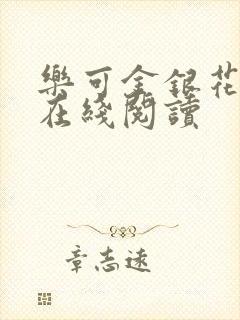 樂可金銀花
在綫閱讀
章志遠